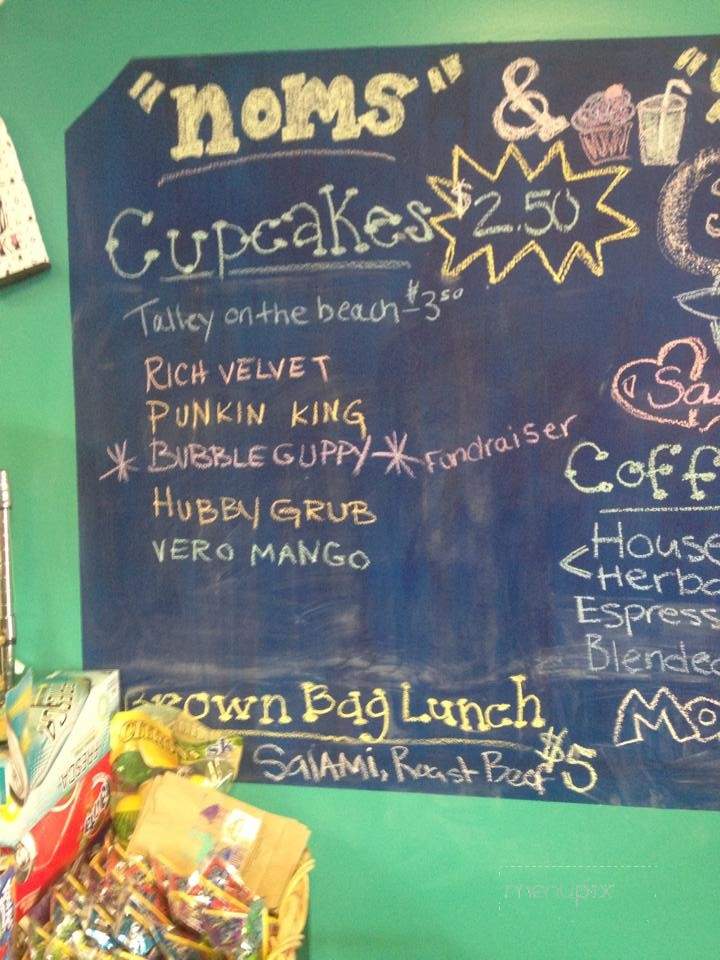 "noms" &
Cupcakes $2.50
Talley on the beach - $3.50
RICH VELVET
PUNKIN KING
* BUBBLE GUPPY * Fundraiser
HUBBY GRUB
VERO MANGO
Brown Bag Lunch
SalAMi, Roast Beef $5
Sa
Coff
House
Herba
Espress
Blended
Mo
menupix